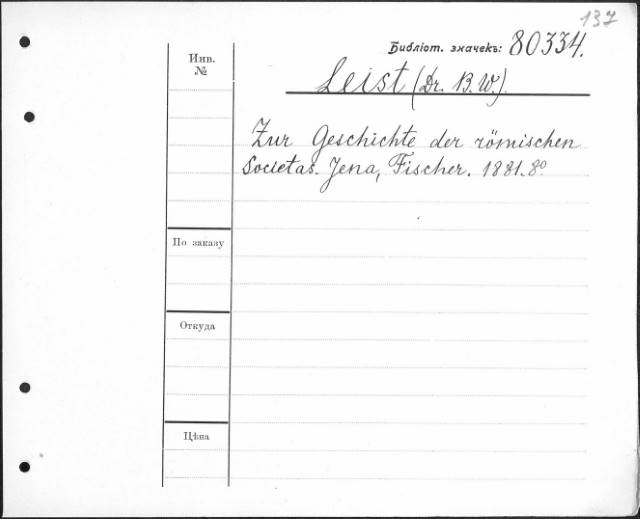 137
Библіот. значекъ: 80334.
Инв.
№
Leist (Dr. B. W.)
Zur Geschichte der römischen
Societas. Jena, Fischer. 1881. 8º
По заказу
Откуда
Цѣна